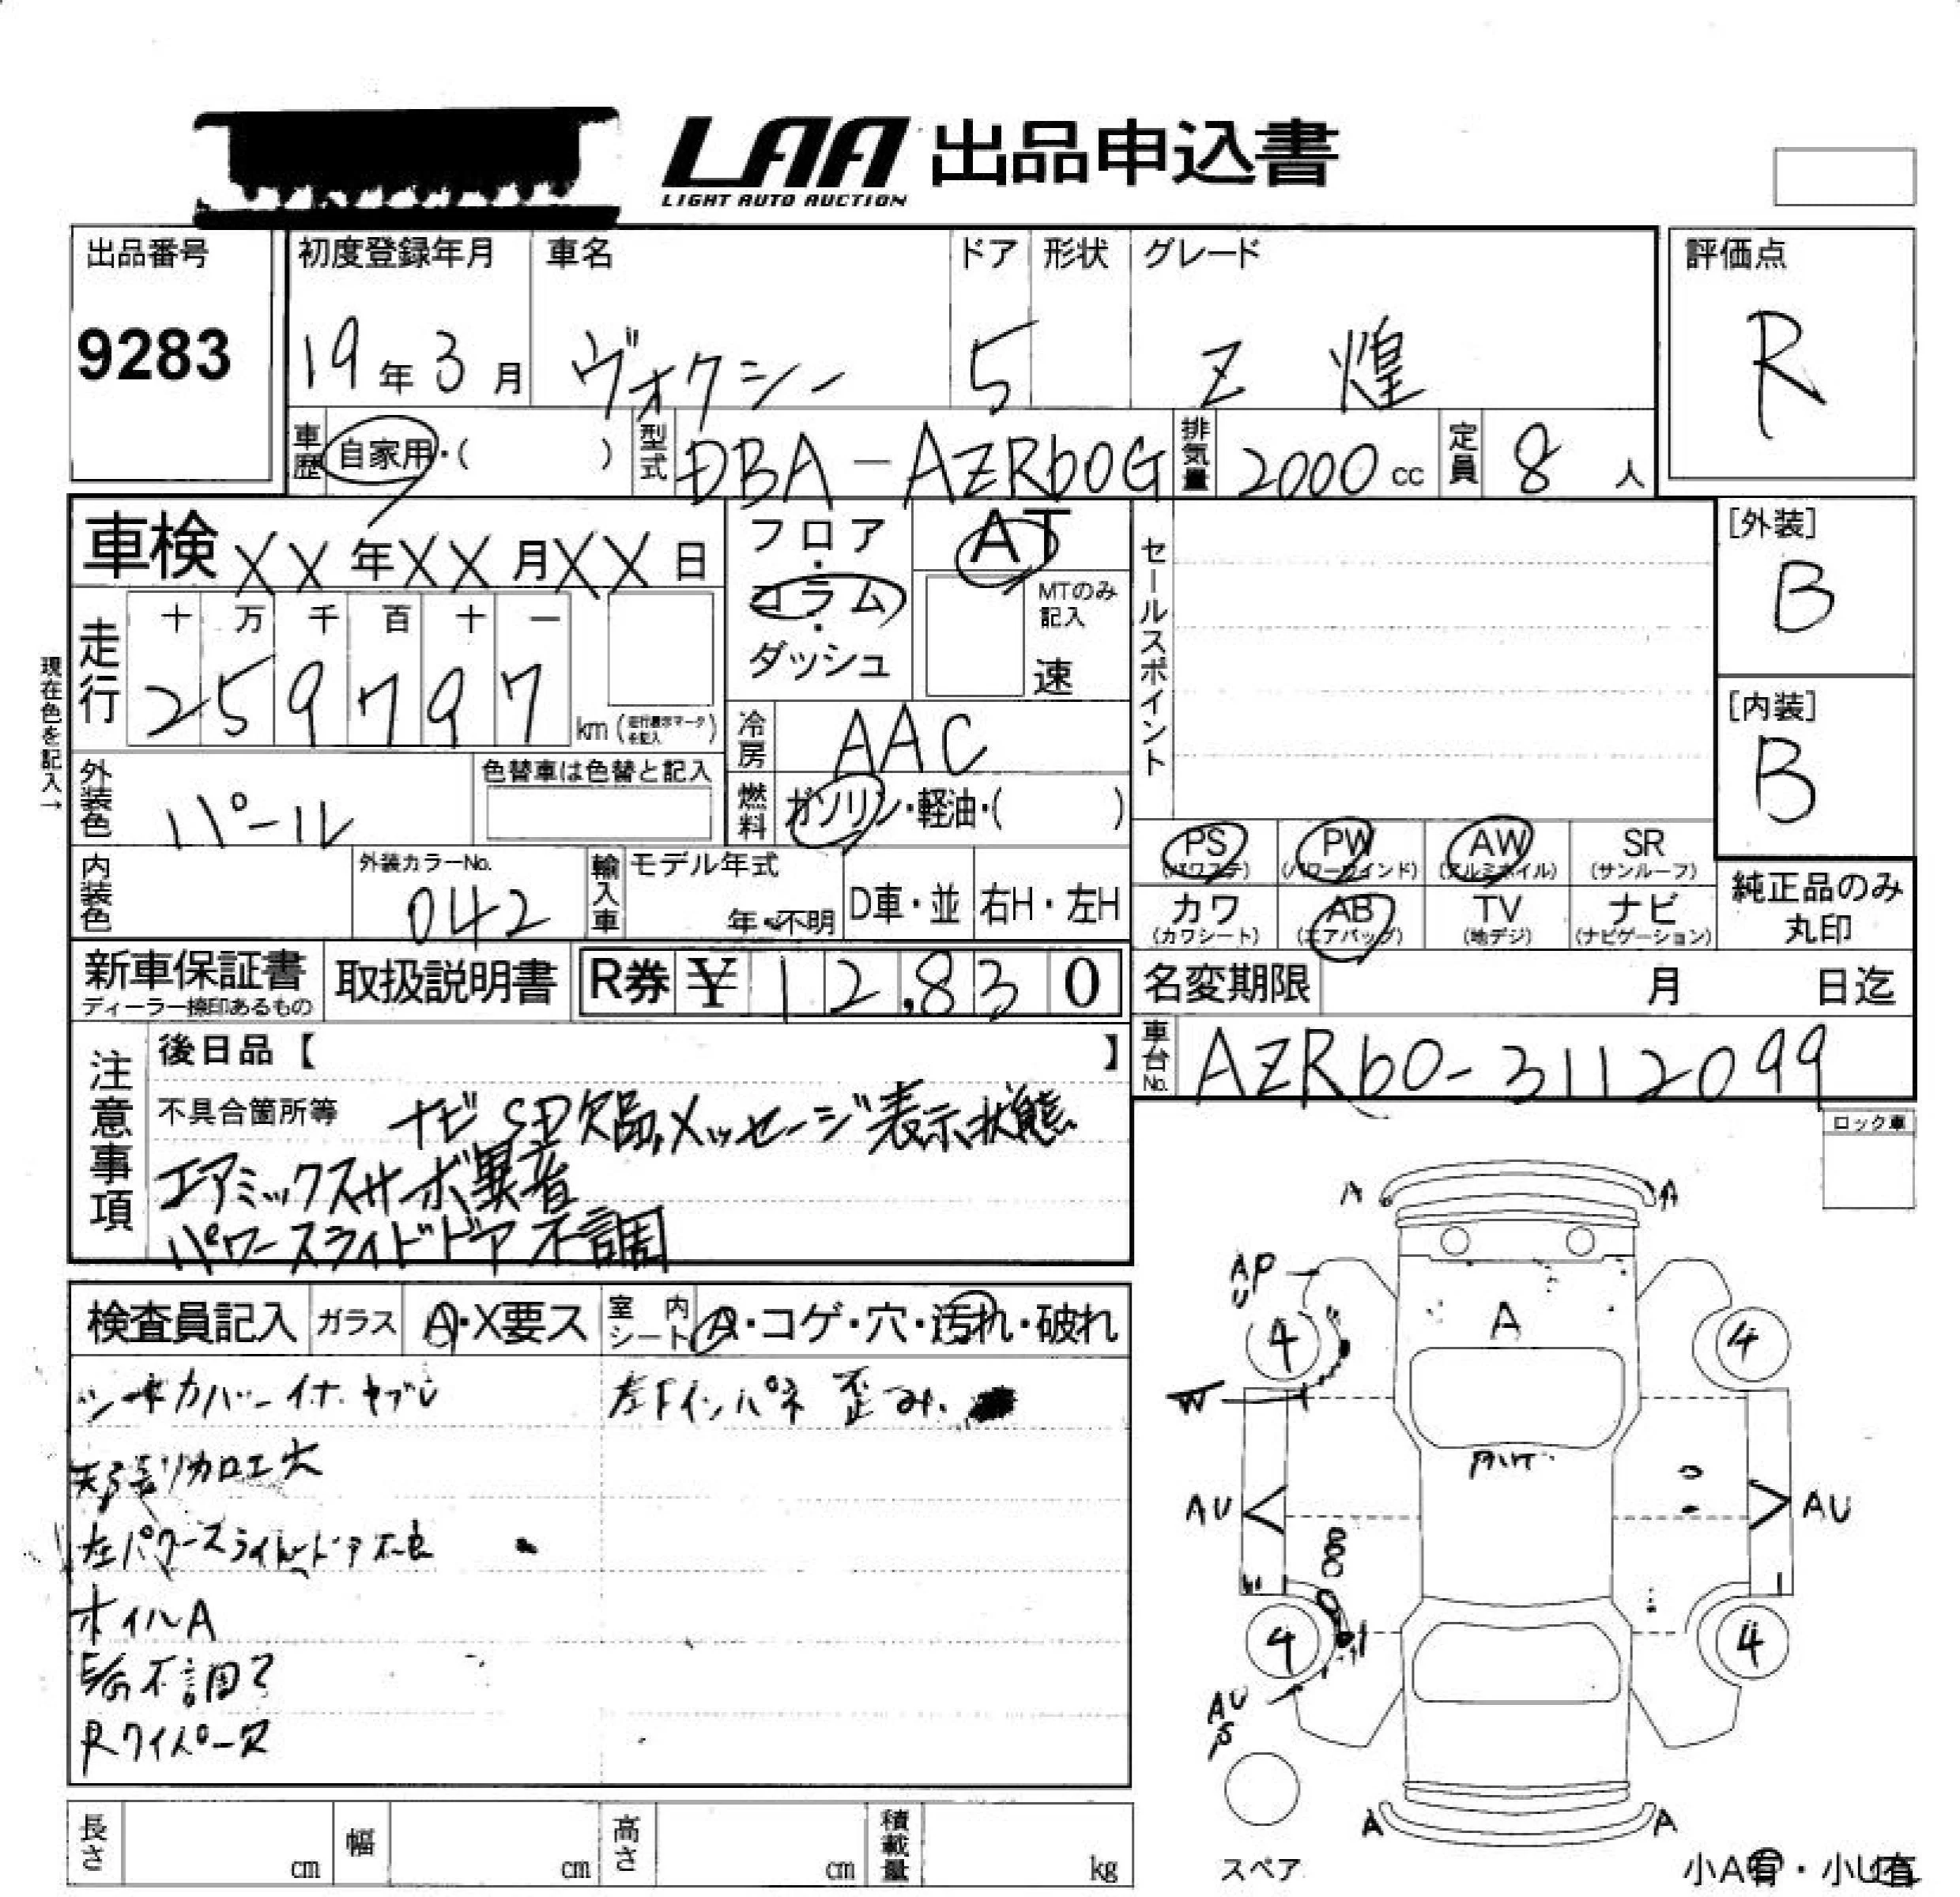 LAA 出品申込書
LIGHT AUTO AUCTION
出品番号
9283
初度登録年月
19年3月
車名
ヴォクシー
ドア
5
形状
グレード
Z 煌
評価点
R
車歴
自家用・( )
型式
DBA-AZR60G
排気量
2000 cc
定員
8 人
車検 XX年XX月XX日
フロア・コラム・ダッシュ
AT
MTのみ記入
速
セールスポイント
[外装]
B
[内装]
B
現在色を記入→
走行
十 万 千 百 十 一
2 5 9 7 9 7
km (走行表示マークを記入)
冷房
AAC
燃料
ガソリン・軽油・( )
外装色
パール
色替車は色替と記入
内装色
外装カラーNo.
042
輸入車
モデル年式
年・不明
D車・並
右H・左H
PS
(パワステ)
PW
(パワーウインド)
AW
(アルミホイル)
SR
(サンルーフ)
カワ
(カワシート)
AB
(エアバッグ)
TV
(地デジ)
ナビ
(ナビゲーション)
純正品のみ丸印
新車保証書
ディーラー捺印あるもの
取扱説明書
R券 ¥ 12,830
名変期限 月 日迄
車台No.
AZR60-3112099
注意事項
後日品【 】
不具合箇所等
ナビSD欠品,メッセージ表示状態
エアミックスサーボ異音
パワースライドドア不調
ロック車
検査員記入
ガラス
A・X要ス
室内シート
A・コゲ・穴・汚れ・破れ
シートカバー イナ ヤブレ
左下インパネ 歪み
天張リカロエ穴
左パワースライドドア不良
オイルA
不調?
Rワイパーヌ
A A
AP
U
4 A 4
W
AU AU
4 4
AU
P
A A
スペア
小A有・小U有
長さ cm
幅 cm
高さ cm
積載量 kg